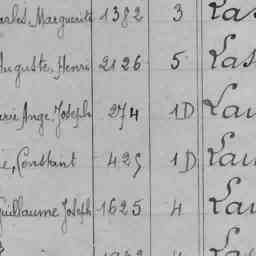 arles, Marguerite 1382 3 Las
Auguste, Henri 2126 5 Las
arie Ange, Joseph 274 1D Lau
ie, Constant 425 1D Lau
Guillaume Joseph 1625 4 Lau